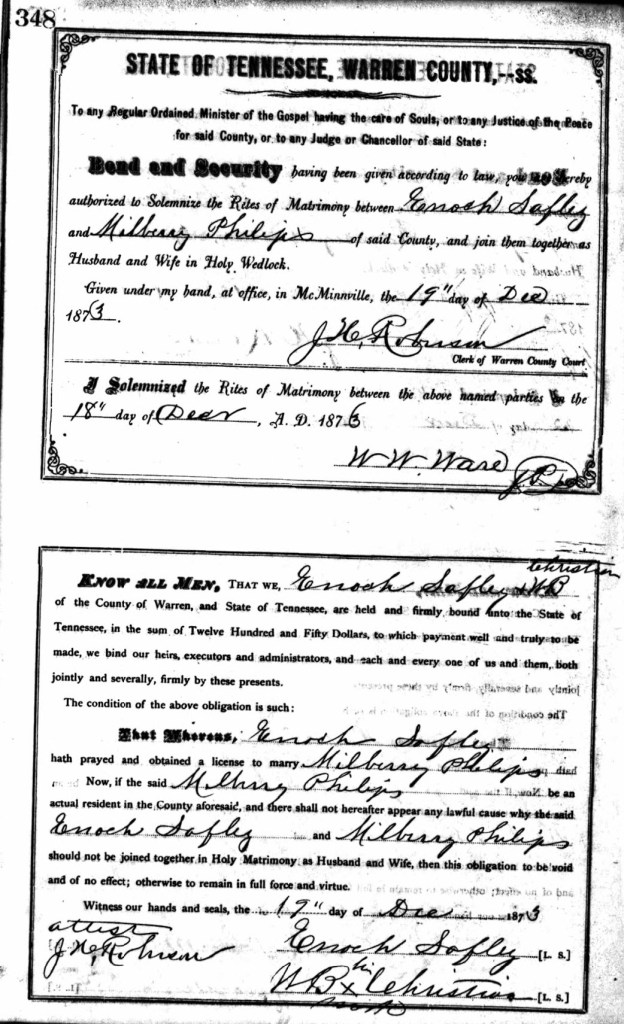 348
STATE OF TENNESSEE, WARREN COUNTY,--ss.
To any Regular Ordained Minister of the Gospel having the care of Souls, or to any Justice of the Peace
for said County, or to any Judge or Chancellor of said State:
Bond and Security having been given according to law, you are hereby
authorized to Solemnize the Rites of Matrimony between Enoch Safley
and Milberry Philips of said County, and join them together as
Husband and Wife in Holy Wedlock.
Given under my hand, at office, in McMinnville, the 19" day of Dec
1873.
J H Robinson
Clerk of Warren County Court
I Solemnized the Rites of Matrimony between the above named parties on the
18" day of Decr, A. D. 1873
W. W. Ware J P
Christian
KNOW ALL MEN, THAT WE, Enoch Safley & WB
of the County of Warren, and State of Tennessee, are held and firmly bound unto the State of
Tennessee, in the sum of Twelve Hundred and Fifty Dollars, to which payment well and truly to be
made, we bind our heirs, executors and administrators, and each and every one of us and them, both
jointly and severally, firmly by these presents.
The condition of the above obligation is such:
That Whereas, Enoch Safley
hath prayed and obtained a license to marry Milberry Philips
Now, if the said Milberry Philips be an
actual resident in the County aforesaid, and there shall not hereafter appear any lawful cause why the said
Enoch Safley and Milberry Philips
should not be joined together in Holy Matrimony as Husband and Wife, then this obligation to be void
and of no effect; otherwise to remain in full force and virtue.
Witness our hands and seals, the 17" day of Dec 1873
attest
J H Robinson Enoch Safley [L. S.]
his
W B x Christian [L. S.]
mark